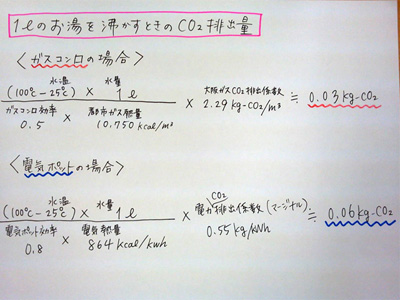 1ℓのお湯を沸かすときのCO2排出量
〈ガスコンロの場合〉
水温 水量
(100℃-25℃) × 1ℓ
ガスコンロ効率 × 都市ガス熱量
0.5 10,750 kcal/m³
× 大阪ガスCO2排出係数
2.29 kg-CO2/m³
≒ 0.03 kg-CO2
〈電気ポットの場合〉
水温 水量
(100℃-25℃) × 1ℓ
電気ポット効率 × 電気熱量
0.8 864 kcal/kwh
× CO2
電力排出係数(マージナル)
0.55 kg/kWh
≒ 0.06 kg-CO2